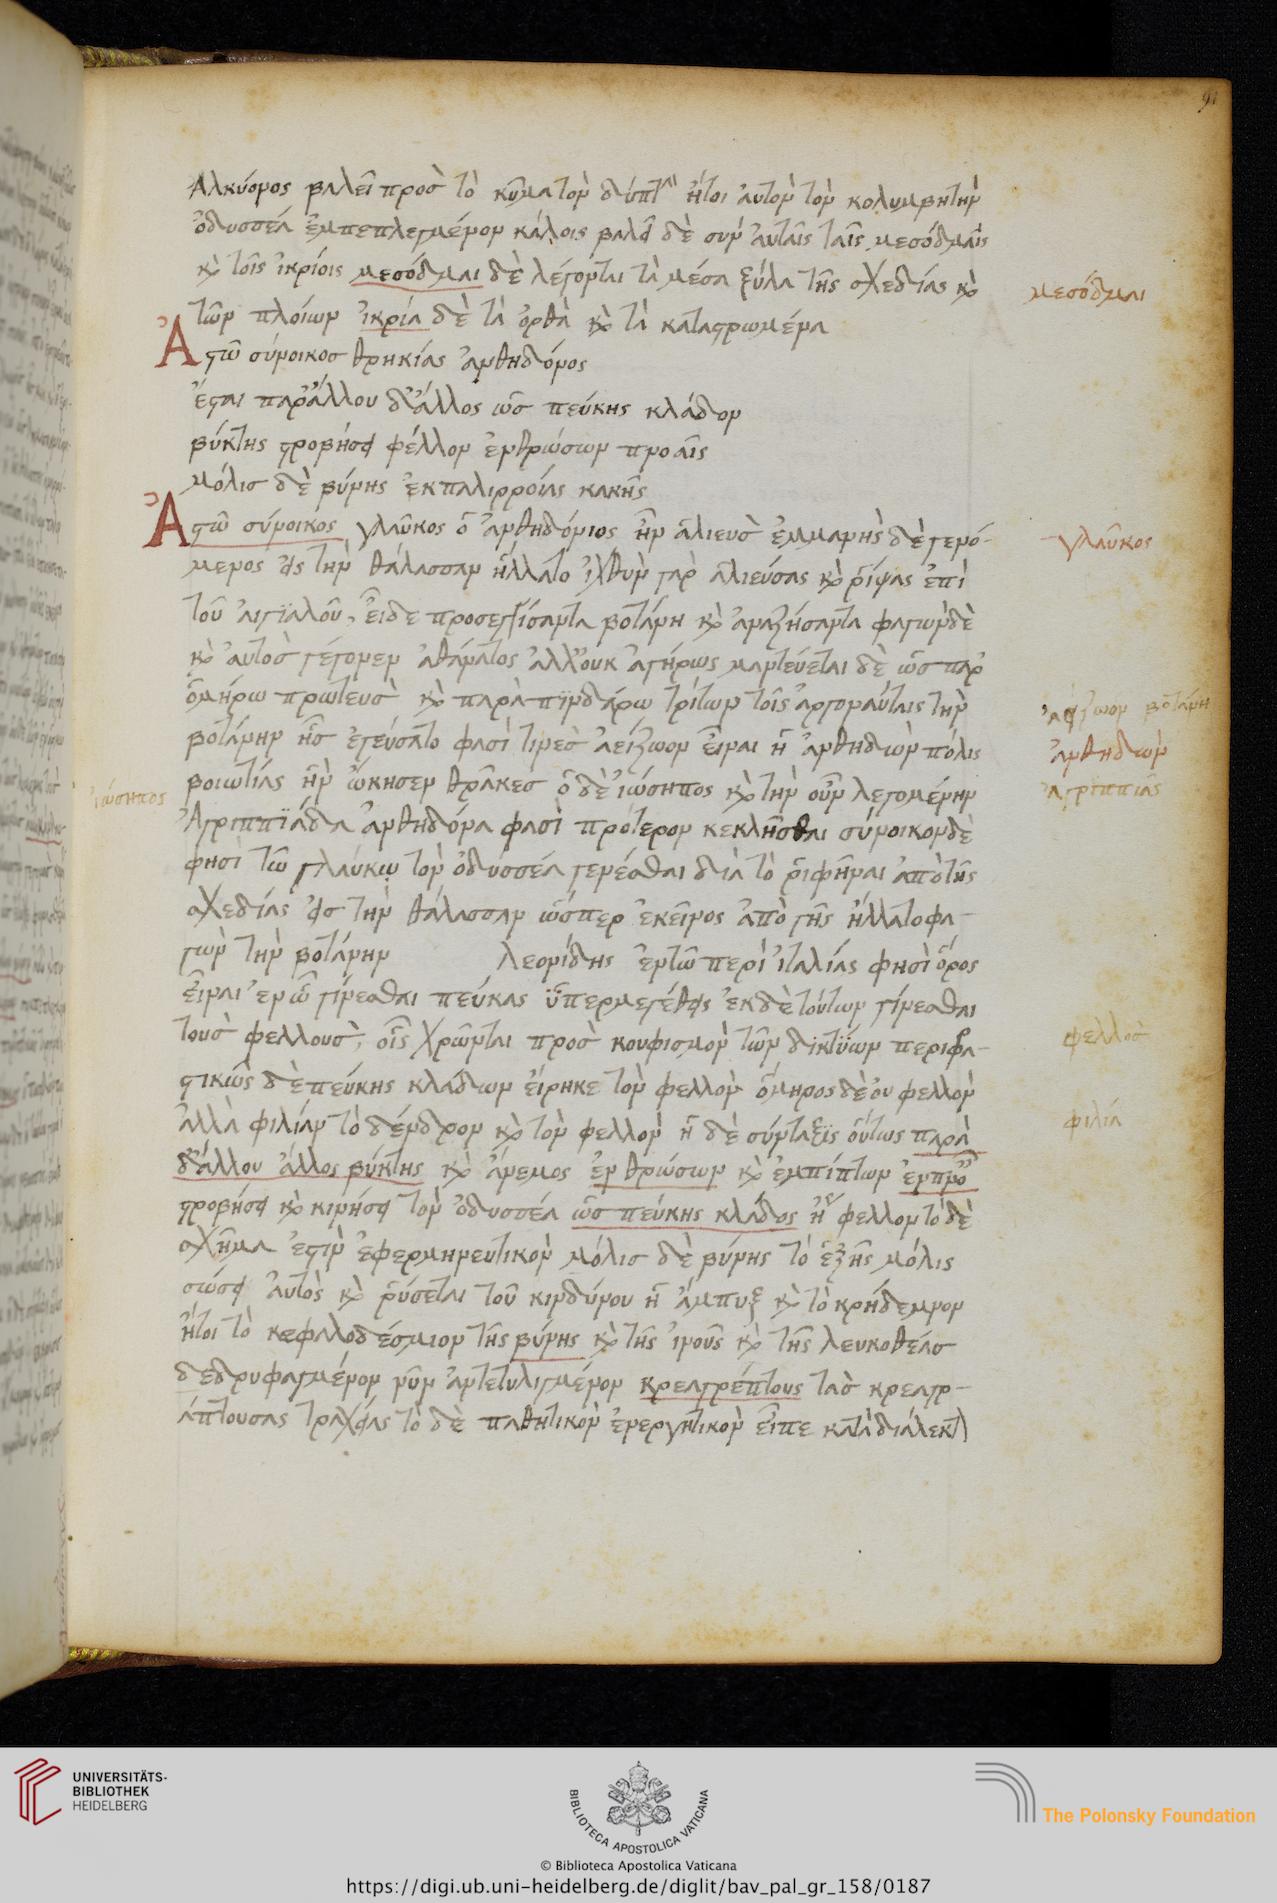 91
ἁλκύονος βαλεῖ πρὸς τὸ κῦμα τὸν δύπτην ἤτοι αὐτὸν τὸν κολυμβητὴν
ὀδυσσέα ἐμπεπλεγμένον κάλοις βαλεῖ δὲ σὺν αὐταῖς ταῖς μεσόδμαις
καὶ τοῖς ἰκρίοις μεσόδμαι δὲ λέγονται τὰ μέσα ξύλα τῆς σχεδίας καὶ
μεσόδμαι
τῶν πλοίων ἰκρία δὲ τὰ ὀρθὰ καὶ τὰ καταστρωμένα
Ἀστῶ σύνοικος θρηκίας ἀνθηδόνος
ἔσται παρ' ἄλλου δ' ἄλλος ὡς πεύκης κλάδον
βύκτης στροβήσει φέλλον ἐνθρώσκων πνοαῖς
μόλις δὲ βύνης ἐκ παλιρροίας κακῆς
Ἀστῶ σύνοικος γλαῦκος ὁ ἀνθηδόνιος ἦν ἁλιεὺς ἐμμανὴς δὲ γενό-
γλαῦκος
μενος εἰς τὴν θάλασσαν ἥλλατο ἰχθὺν γὰρ ἁλιεύσας καὶ ῥίψας ἐπὶ
τοῦ αἰγιαλοῦ, εἶδε προσεγγίσαντα βοτάνη καὶ ἀναζήσαντα φαγὼν δὲ
καὶ αὐτὸς γέγονεν ἀθάνατος ἀλλ' οὐκ ἀγήρως μαντεύεται δὲ ὡς παρ'
ὁμήρω πρωτεὺς καὶ παρὰ πινδάρω τρίτων τοῖς ἀργοναύταις τὴν
ἀείζωον βοτάνη
βοτάνην ἧς ἐγεύσατο φασί τινες ἀείζωον εἶναι ἡ ἀνθηδὼν πόλις
ἀνθηδὼν
βοιωτίας ἣν ὤκησεν θρᾶκες ὁ δὲ ἰώσηπος καὶ τὴν νῦν λεγομένην
ἰώσηπος
ἀγριππιὰς
Ἀγριππϊάδα ἀνθηδόνα φασὶ πρότερον κεκλῆσθαι σύνοικον δὲ
φησὶ τῶ γλαύκῳ τὸν ὀδυσσέα γενέσθαι διὰ τὸ ῥιφῆναι ἀπὸ τῆς
σχεδίας εἰς τὴν θάλασσαν ὥσπερ ἐκεῖνος ἀπὸ γῆς ἥλλατο φα-
γὼν τὴν βοτάνην λεονίδης ἐν τῶ περὶ ἰταλίας φησὶ ὄρος
εἶναι ἐν ὧ γίνεσθαι πεύκας ὑπερμεγέθεις ἐκ δὲ τούτων γίνεσθαι
τοὺς φελλοὺς, οἷς χρῶνται πρὸς κουφισμὸν τῶν δικτύων περιφρα-
φελλὸς
στικῶς δὲ πεύκης κλάδων εἴρηκε τὸν φελλὸν ὅμηρος δὲ οὐ φελλὸν
ἀλλὰ φιλίαν τὸ δένδρον καὶ τὸν φελλὸν ἡ δὲ σύνταξις οὕτως παρὰ
φιλία
δ' ἄλλου ἄλλος βύκτης καὶ ἄνεμος ἐνθρώσκων καὶ ἐμπίπτων ἐν πνοαῖς
στροβήσει καὶ κινήσει τὸν ὀδυσσέα ὡς πεύκης κλάδος ἢ φελλον τὸ δὲ
σχῆμα ἐστὶν ἐφερμηνευτικὸν μόλις δὲ βύνης τὸ ἑξῆς μόλις
σώσει αὐτὸς καὶ ῥύσεται τοῦ κινδύνου ἡ ἄμπυξ καὶ τὸ κρήδεμνον
ἤτοι τὸ κεφαλοδέσμιον τῆς βύνης καὶ τῆς ἰνοῦς καὶ τῆς λευκοθέας
δεδρυφαγμένον νῦν ἀντετυλιγμένον κρεαγρέπτους τὰς κρεαγρ-
άπτουσας τραχείας τὸ δὲ παθητικὸν ἐνεργητικὸν εἶπε κατὰ διάλεκτ)
UNIVERSITÄTS-
BIBLIOTHEK
HEIDELBERG
BIBLIOTECA APOSTOLICA VATICANA
The Polonsky Foundation
© Biblioteca Apostolica Vaticana
https://digi.ub.uni-heidelberg.de/diglit/bav_pal_gr_158/0187